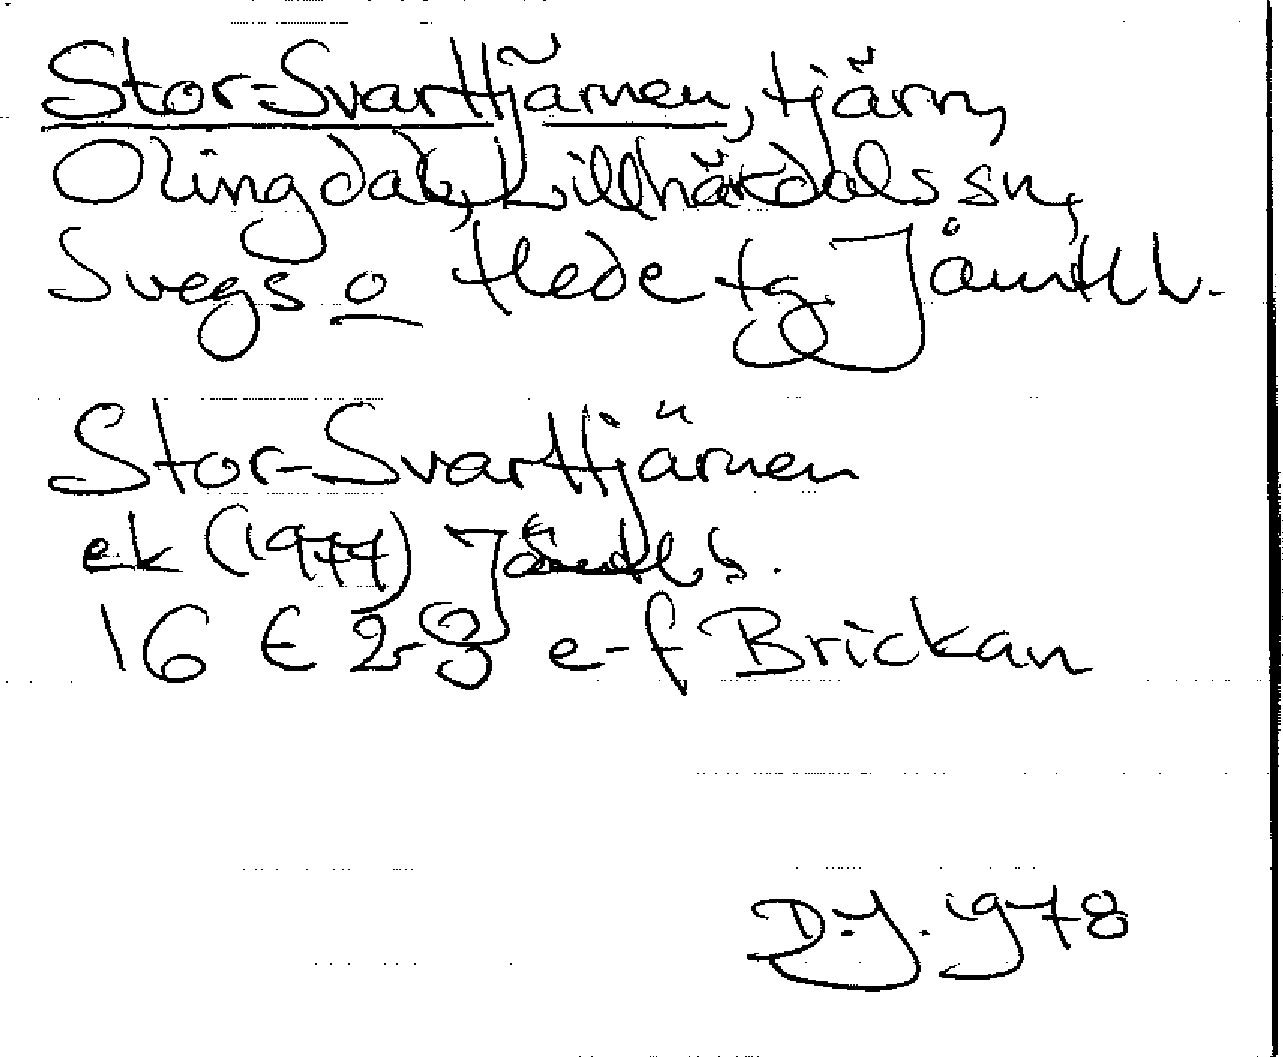 Stor-Svarttjärnen, tjärn,
Olingdal, Lillhärdals sn,
Svegs o Hede tg Jämtl l.
Stor-Svarttjärnen
ek (1977) Jämtl. l.
16 E 2-3 e-f Brickan
D.J. 1978